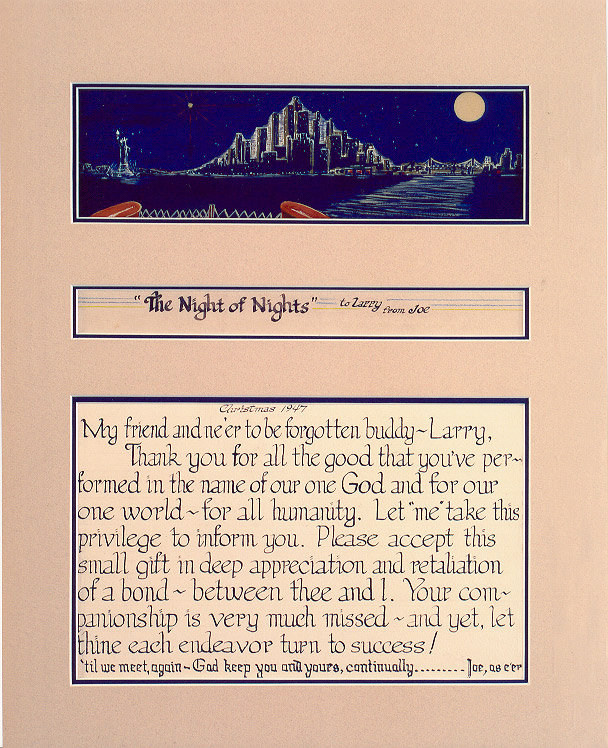 "The Night of Nights" to Larry from Joe
Christmas 1947
My friend and ne'er to be forgotten buddy~Larry,
Thank you for all the good that you've per~
formed in the name of our one God and for our
one world~for all humanity. Let "me" take this
privilege to inform you. Please accept this
small gift in deep appreciation and retaliation
of a bond~between thee and I. Your com~
panionship is very much missed~and yet, let
thine each endeavor turn to success!
'til we meet, again~God keep you and yours, continually......... Joe, as e'er